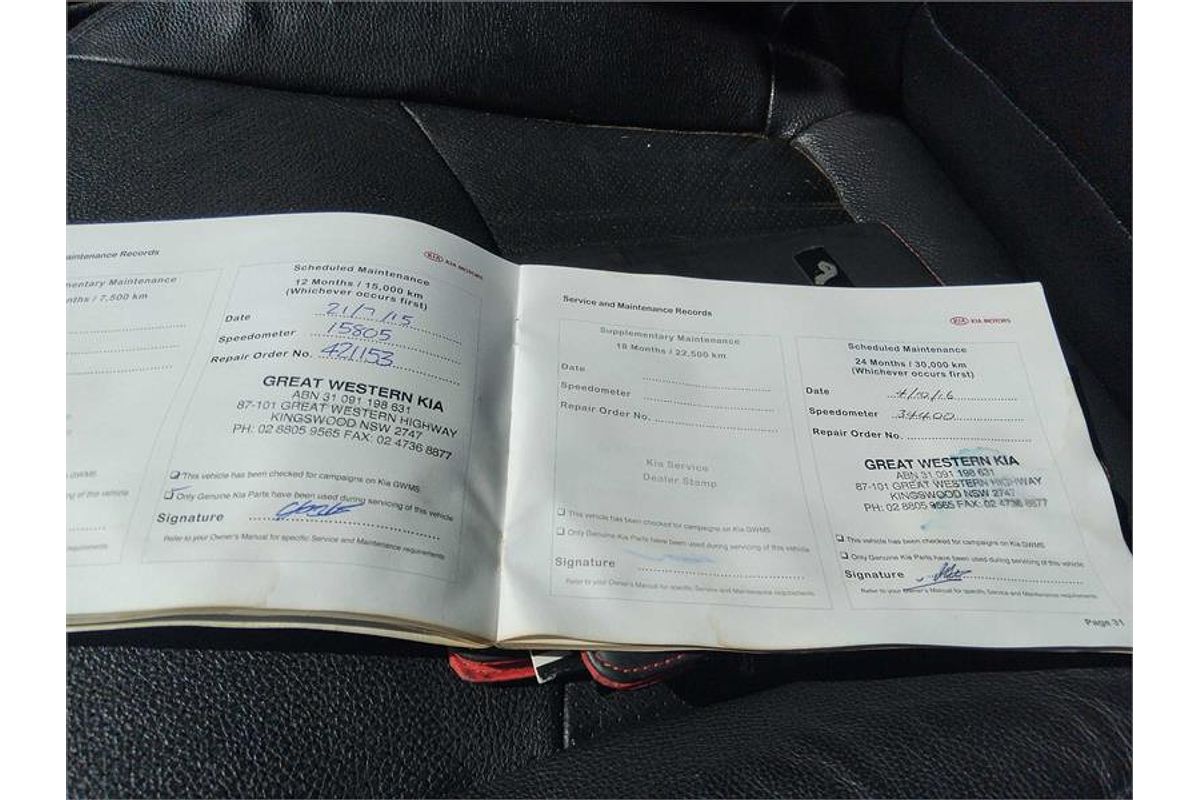 aintenance Records
KIA KIA MOTORS
mentary Maintenance
nths / 7,500 km
Scheduled Maintenance
12 Months / 15,000 km
(Whichever occurs first)
Date 21/7/15
Speedometer 15805
Repair Order No. 421153
GREAT WESTERN KIA
ABN 31 091 198 631
87-101 GREAT WESTERN HIGHWAY
KINGSWOOD NSW 2747
PH: 02 8805 9565 FAX: 02 4736 8877
This vehicle has been checked for campaigns on Kia GWMS
Only Genuine Kia Parts have been used during servicing of this vehicle
Signature
Refer to your Owner's Manual for specific Service and Maintenance requirements
GWMS
of this vehicle
Service and Maintenance Records
KIA KIA MOTORS
Supplementary Maintenance
18 Months / 22,500 km
Date
Speedometer
Repair Order No.
Kia Service
Dealer Stamp
This vehicle has been checked for campaigns on Kia GWMS
Only Genuine Kia Parts have been used during servicing of this vehicle
Signature
Refer to your Owner's Manual for specific Service and Maintenance requirements
Scheduled Maintenance
24 Months / 30,000 km
(Whichever occurs first)
Date
Speedometer 34400
Repair Order No.
GREAT WESTERN KIA
ABN 31 091 198 631
87-101 GREAT WESTERN HIGHWAY
KINGSWOOD NSW 2747
PH: 02 8805 9565 FAX: 02 4736 8877
This vehicle has been checked for campaigns on Kia GWMS
Only Genuine Kia Parts have been used during servicing of this vehicle
Signature
Refer to your Owner's Manual for specific Service and Maintenance requirements
Page 31